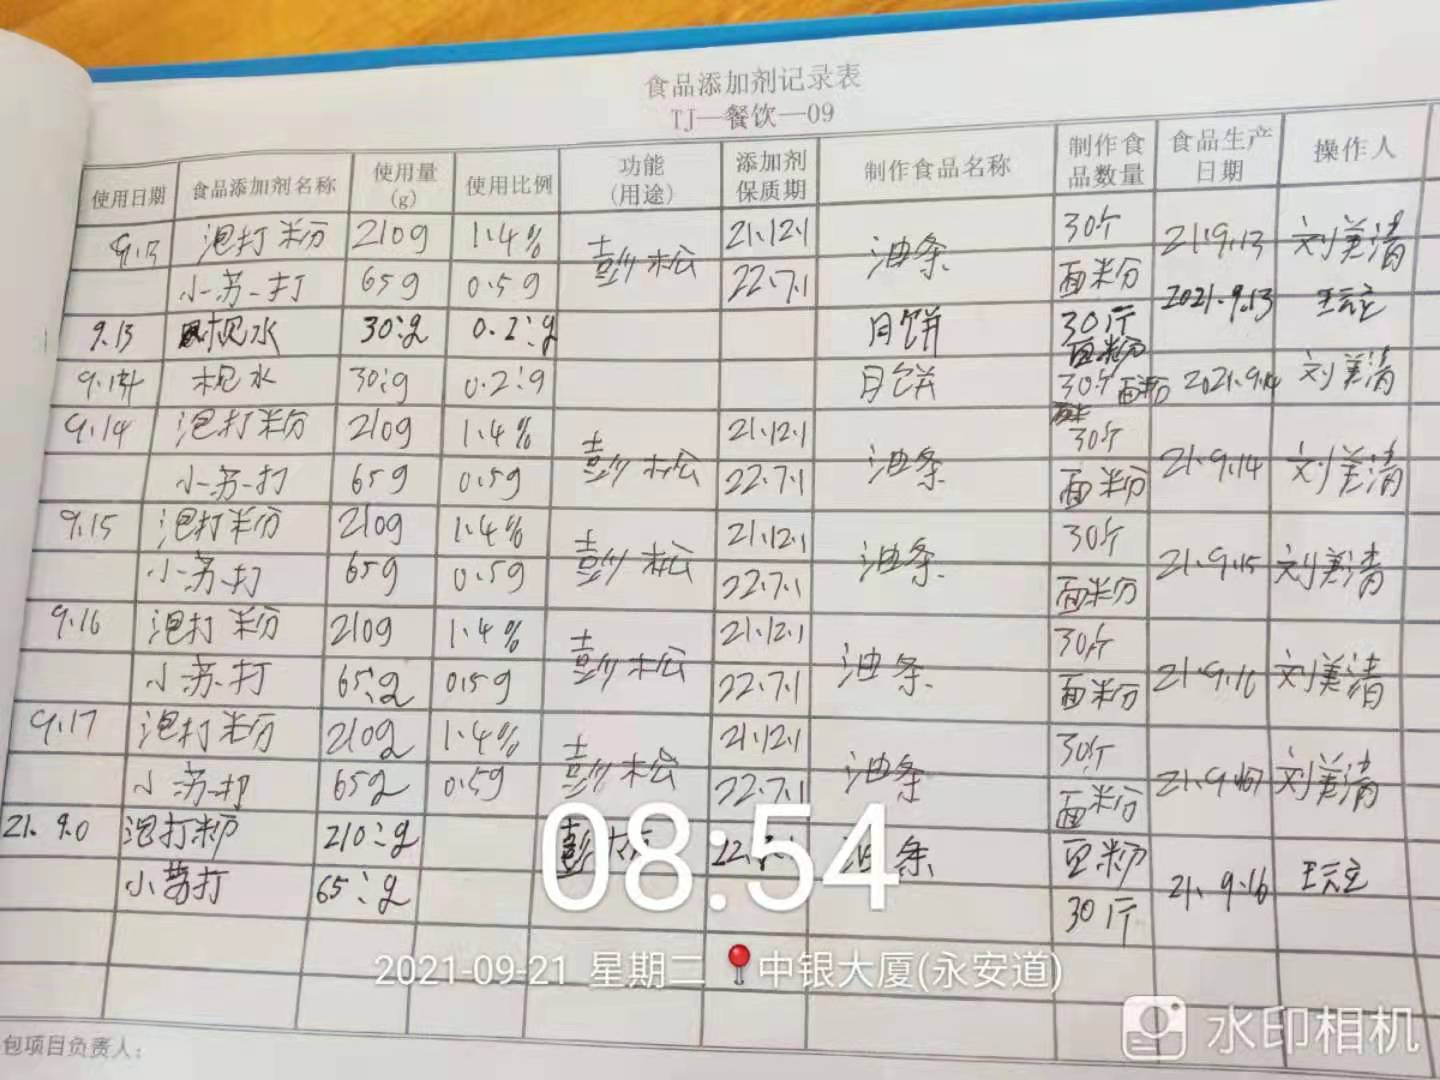 食品添加剂记录表
TJ—餐饮—09
使用日期 食品添加剂名称 使用量(g) 使用比例 功能(用途) 添加剂保质期 制作食品名称 制作食品数量 食品生产日期 操作人
9.13 泡打粉 210g 1.4% 彭松 21.12.1 油条 30斤 21.9.13 刘美清
小苏打 65g 0.5g 22.7.1 面粉
9.13 枧水 30:g 0.2:g 月饼 30斤 面粉 2021.9.13
9.14 枧水 30:g 0.2:g 月饼 30斤 面粉 2021.9.14 刘美清
9.14 泡打粉 210g 1.4% 彭松 21.12.1 油条 30斤 21.9.14 刘美清
小苏打 65g 0.5g 22.7.1 面粉
9.15 泡打粉 210g 1.4% 彭松 21.12.1 油条 30斤 21.9.15 刘美清
小苏打 65g 0.5g 22.7.1 面粉
9.16 泡打粉 210g 1.4% 彭松 21.12.1 油条 30斤 21.9.16 刘美清
小苏打 65:g 0.5g 22.7.1 面粉
9.17 泡打粉 210g 1.4% 彭松 21.12.1 油条 30斤 刘美清
小苏打 65g 0.5g 22.7.1 面粉
21.9.0 泡打粉 210:g 油条 面粉 21.9.16
小苏打 65:g 30斤
08:54
2021-09-21 星期二 中银大厦(永安道)
包项目负责人:
水印相机